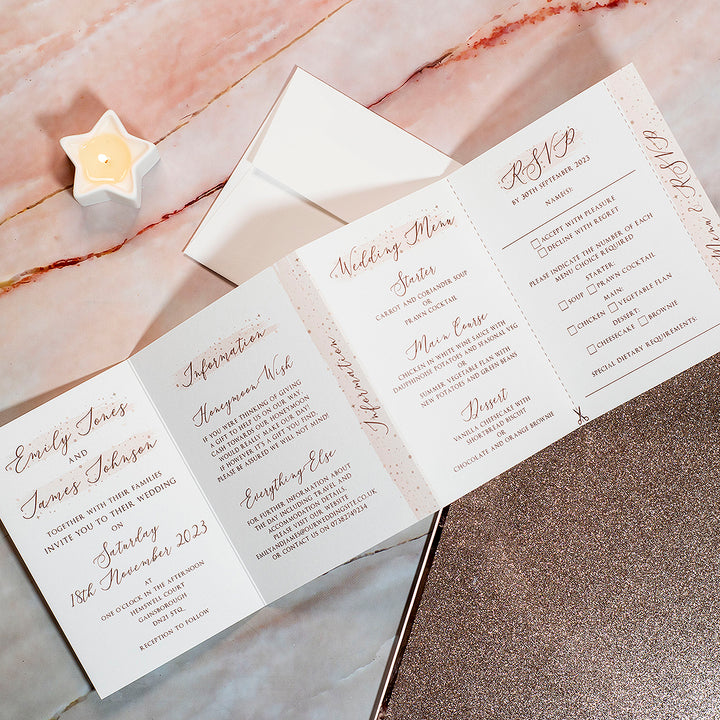 Emily Jones
AND
James Johnson
TOGETHER WITH THEIR FAMILIES
INVITE YOU TO THEIR WEDDING
ON
Saturday
18th November 2023
AT
ONE O'CLOCK IN THE AFTERNOON
HEMSWELL COURT
GAINSBOROUGH
DN21 5TQ
RECEPTION TO FOLLOW
Information
Honeymoon Wish
IF YOU WERE THINKING OF GIVING
A GIFT TO HELP US ON OUR WAY
CASH TOWARDS OUR HONEYMOON
WOULD REALLY MAKE OUR DAY.
IF HOWEVER IT'S A GIFT YOU FIND,
PLEASE BE ASSURED WE WILL NOT MIND!
Everything Else
FOR FURTHER INFORMATION ABOUT
THE DAY INCLUDING TRAVEL AND
ACCOMMODATION DETAILS,
PLEASE VISIT OUR WEBSITE
EMILYANDJAMES@OURWEDDINGSITE.CO.UK
OR CONTACT US ON 07382749234
Information
Wedding Menu
Starter
CARROT AND CORIANDER SOUP
OR
PRAWN COCKTAIL
Main Course
CHICKEN IN WHITE WINE SAUCE WITH
DAUPHINOISE POTATOES AND SEASONAL VEG
OR
SUMMER VEGETABLE FLAN WITH
NEW POTATOES AND GREEN BEANS
Dessert
VANILLA CHEESECAKE WITH
SHORTBREAD BISCUIT
OR
CHOCOLATE AND ORANGE BROWNIE
RSVP
BY 30TH SEPTEMBER 2023
NAME(S):
ACCEPT WITH PLEASURE
DECLINE WITH REGRET
PLEASE INDICATE THE NUMBER OF EACH
MENU CHOICE REQUIRED
STARTER:
SOUP PRAWN COCKTAIL
MAIN:
CHICKEN VEGETABLE FLAN
DESSERT:
CHEESECAKE BROWNIE
SPECIAL DIETARY REQUIREMENTS:
Menu & RSVP